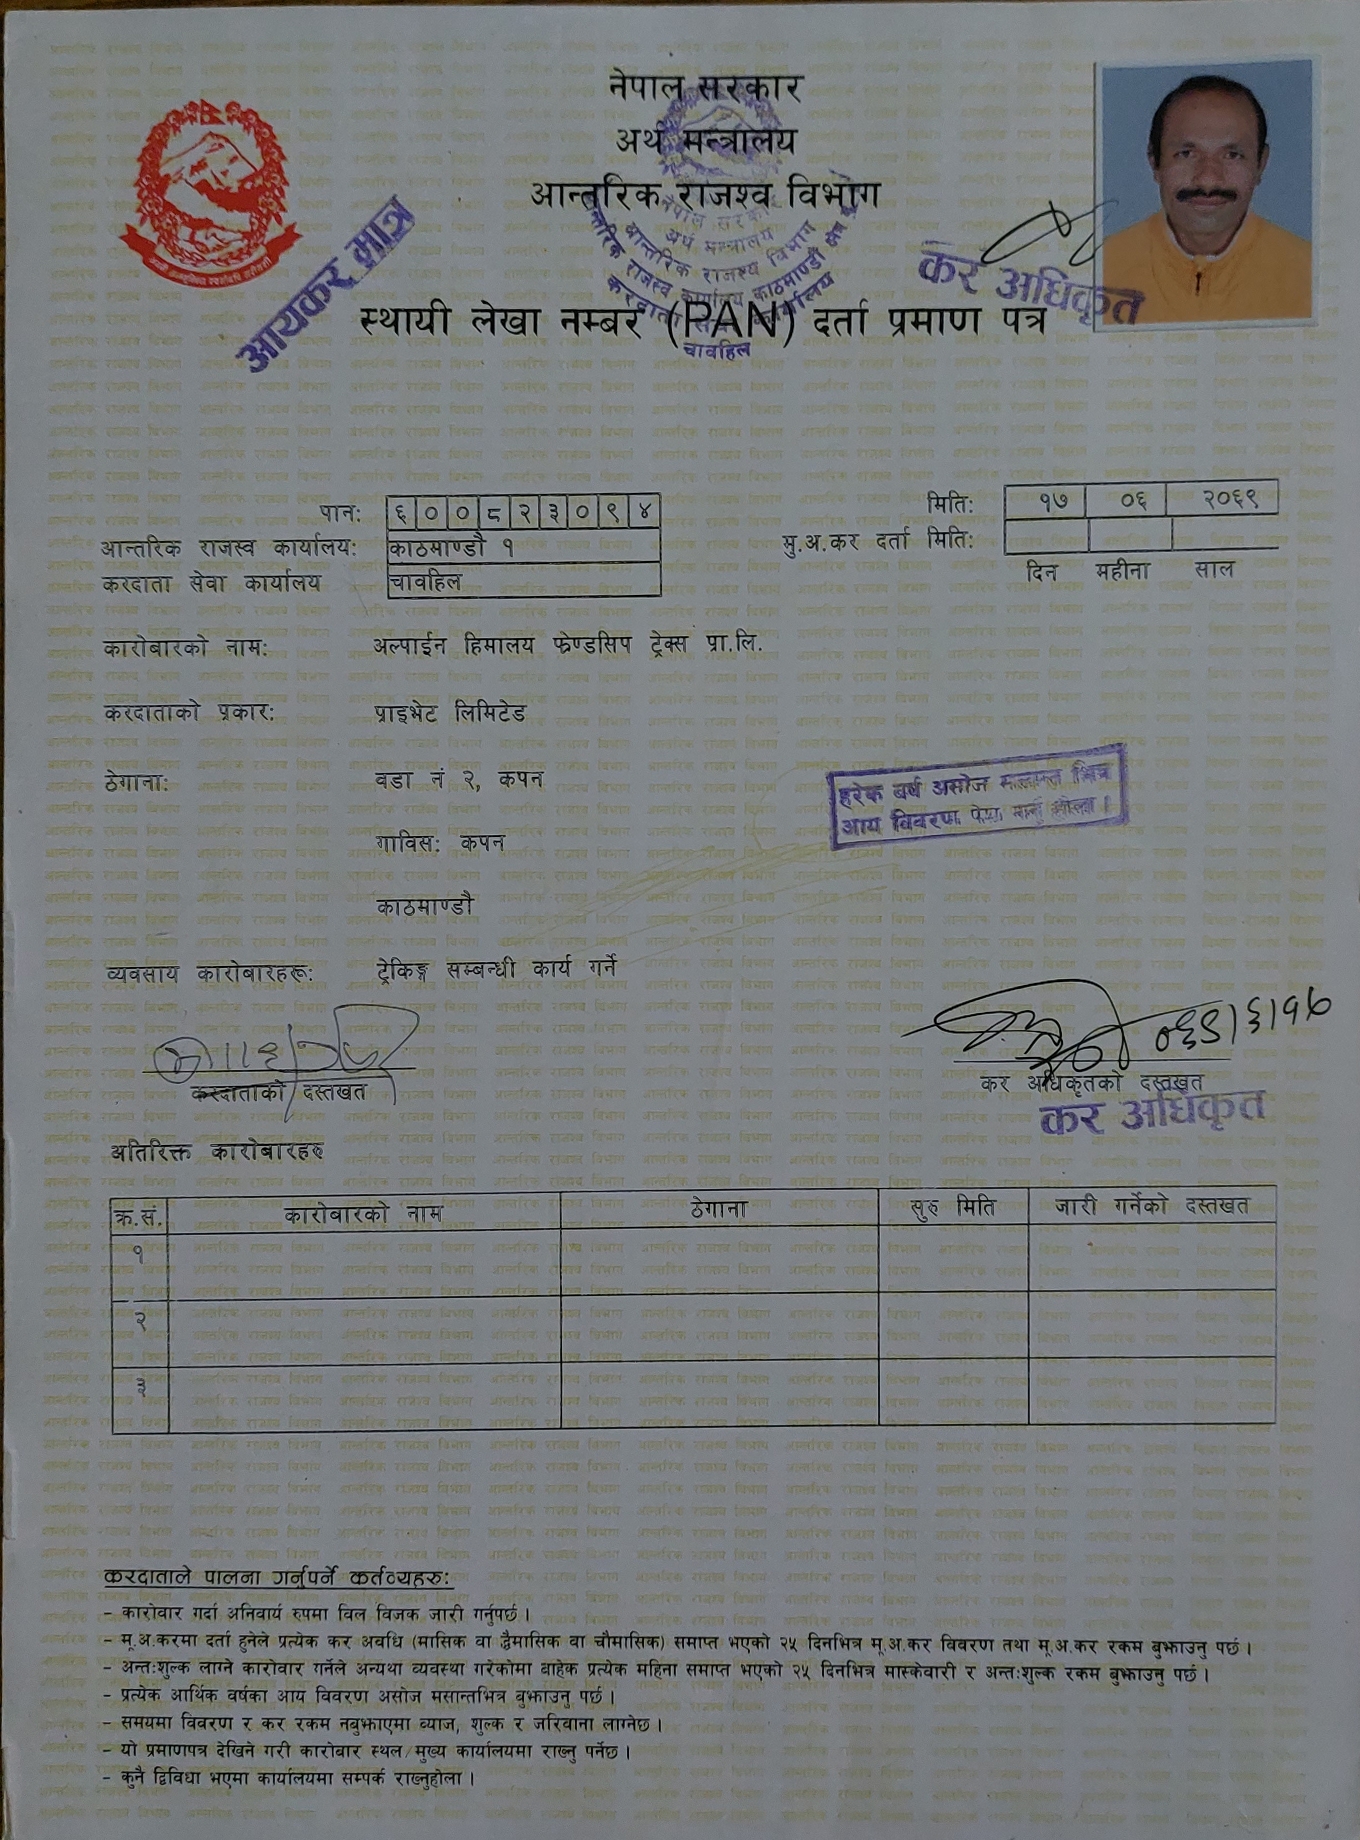 नेपाल सरकार
अर्थ मन्त्रालय
आन्तरिक राजश्व विभाग
आयकर मात्र
कर अधिकृत
स्थायी लेखा नम्बर (PAN) दर्ता प्रमाण पत्र
चावहिल
पान: ६ ० ० ८ २ ३ ० ९ ४
मिति: १७ ०६ २०६९
आन्तरिक राजस्व कार्यालय: काठमाण्डौ १
मु.अ.कर दर्ता मिति:
करदाता सेवा कार्यालय चावहिल
दिन महीना साल
कारोबारको नाम: अल्पाईन हिमालय फ्रेण्डसिप ट्रेक्स प्रा.लि.
करदाताको प्रकार: प्राइभेट लिमिटेड
ठेगाना: वडा नं २, कपन
हरेक बर्ष असोज मसान्त भित्र
आय विवरण पेश गर्नु होला ।
गाविस: कपन
काठमाण्डौ
व्यवसाय कारोबारहरू: ट्रेकिङ्ग सम्बन्धी कार्य गर्ने
०६९।६।१७
करदाताको दस्तखत
कर अधिकृतको दस्तखत
कर अधिकृत
अतिरिक्त कारोबारहरु
क्र.सं. कारोबारको नाम ठेगाना सुरु मिति जारी गर्नेको दस्तखत
१
२
३
करदाताले पालना गर्नुपर्ने कर्तव्यहरु:
- कारोवार गर्दा अनिवार्य रुपमा विल विजक जारी गर्नुपर्छ ।
- मू.अ.करमा दर्ता हुनेले प्रत्येक कर अवधि (मासिक वा द्वैमासिक वा चौमासिक) समाप्त भएको २५ दिनभित्र मू.अ.कर विवरण तथा मू.अ.कर रकम बुझाउनु पर्छ ।
- अन्त:शुल्क लाग्ने कारोवार गर्नेले अन्यथा व्यवस्था गरेकोमा बाहेक प्रत्येक महिना समाप्त भएको २५ दिनभित्र मास्केवारी र अन्त:शुल्क रकम बुझाउनु पर्छ ।
- प्रत्येक आर्थिक वर्षका आय विवरण असोज मसान्तभित्र बुझाउनु पर्छ ।
- समयमा विवरण र कर रकम नबुझाएमा व्याज, शुल्क र जरिवाना लाग्नेछ ।
- यो प्रमाणपत्र देखिने गरी कारोबार स्थल/मुख्य कार्यालयमा राख्नु पर्नेछ ।
- कुनै द्विविधा भएमा कार्यालयमा सम्पर्क राख्नुहोला ।